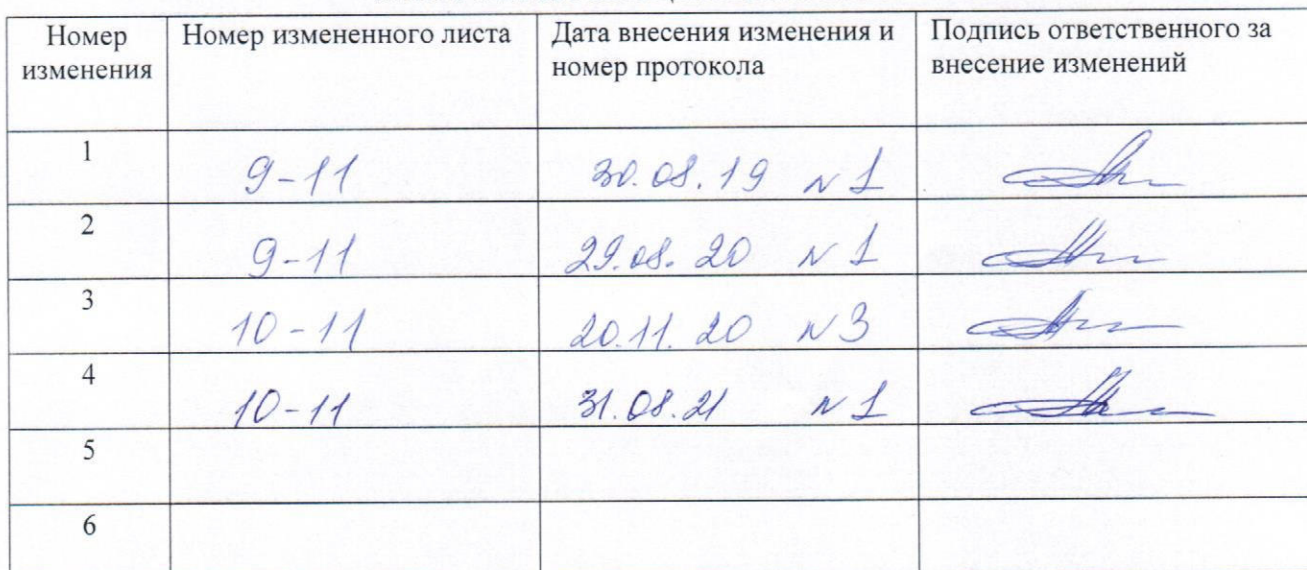 Номер изменения Номер измененного листа Дата внесения изменения и номер протокола Подпись ответственного за внесение изменений
1 9-11 30.08.19 N 1
2 9-11 29.08.20 N 1
3 10-11 20.11.20 N 3
4 10-11 31.08.21 N 1
5
6